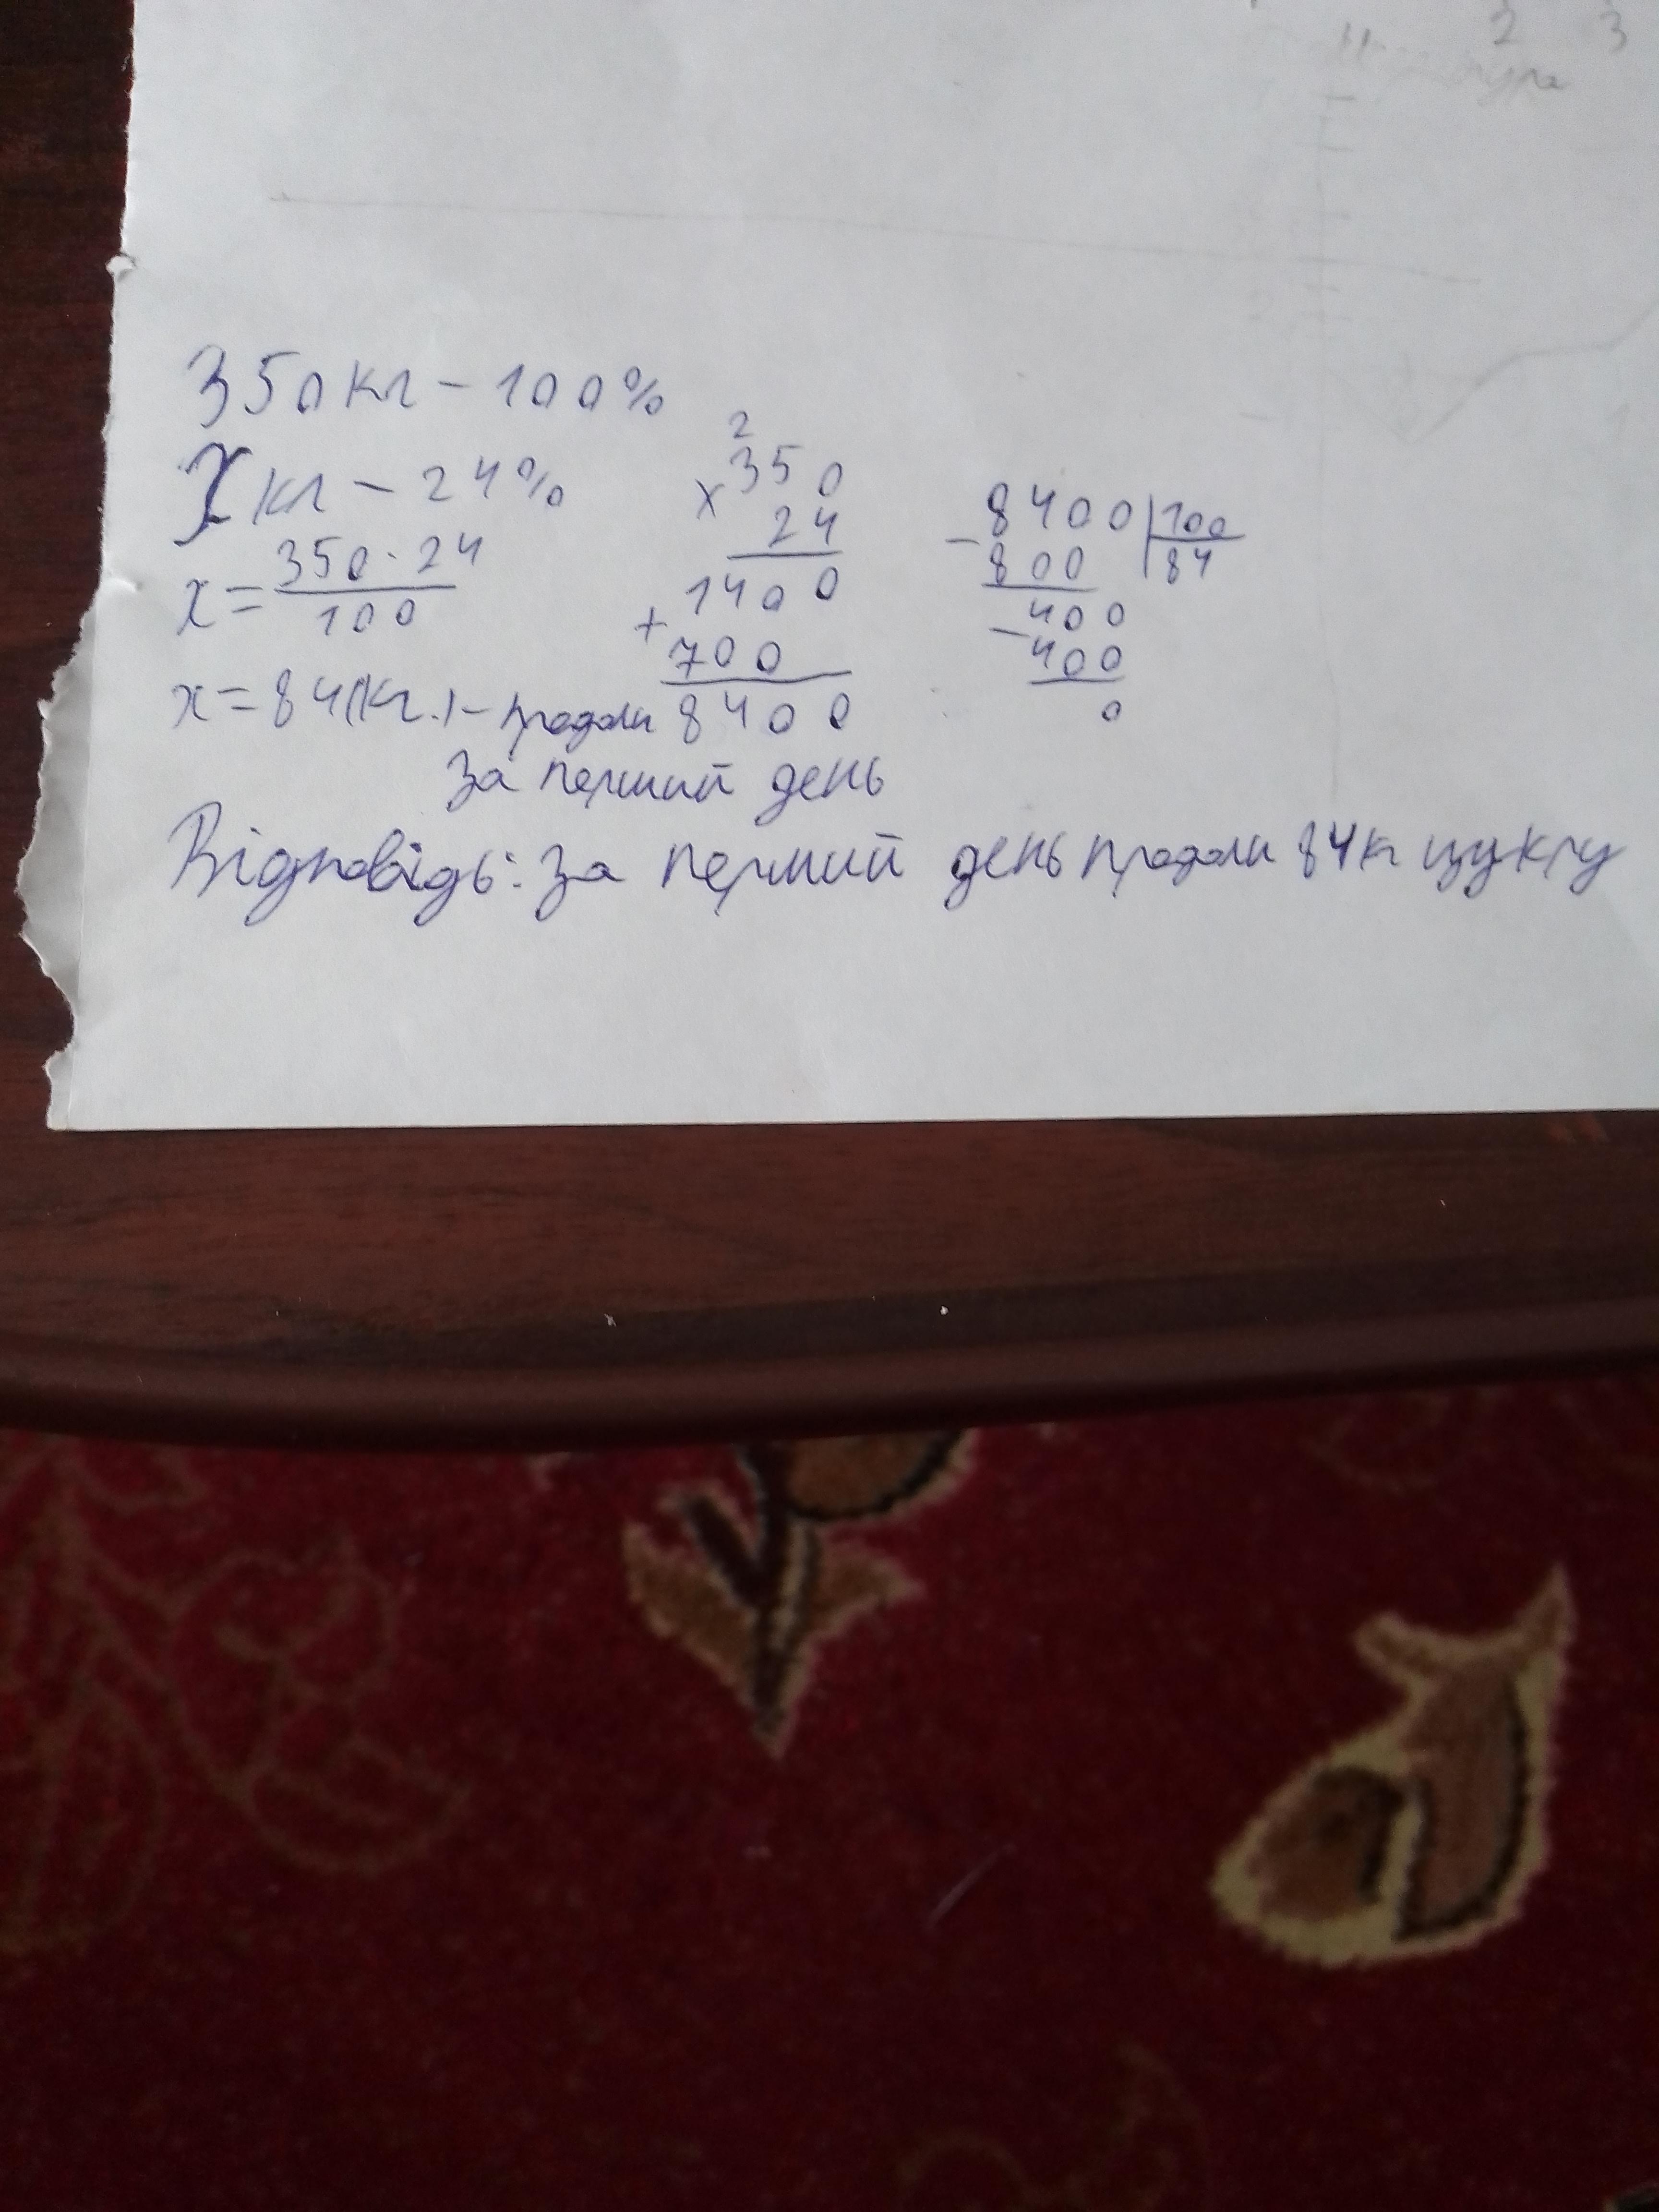 350кг - 100%
x кг - 24%
x = 350 · 24
100
x = 84(кг.) - продали
за перший день
2
× 350
24
1400
+ 700
8400
- 8400 | 100
800 84
400
- 400
0
Відповідь: за перший день продали 84кг цукру
2 3